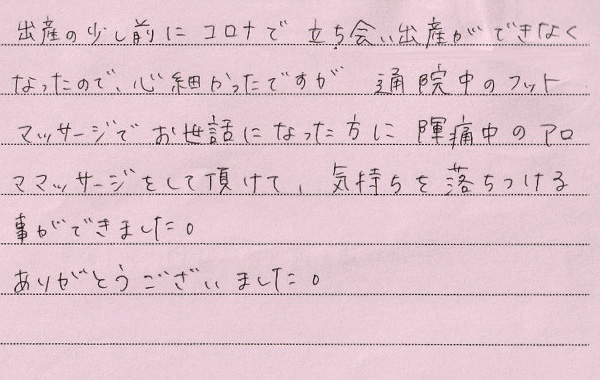 出産の少し前に コロナで 立ち会い出産ができなく
なったので、心細かったですが 通院中のフット
マッサージで お世話になった方に 陣痛中のアロ
ママッサージをして頂けて、気持ちを落ちつける
事ができました。
ありがとうございました。